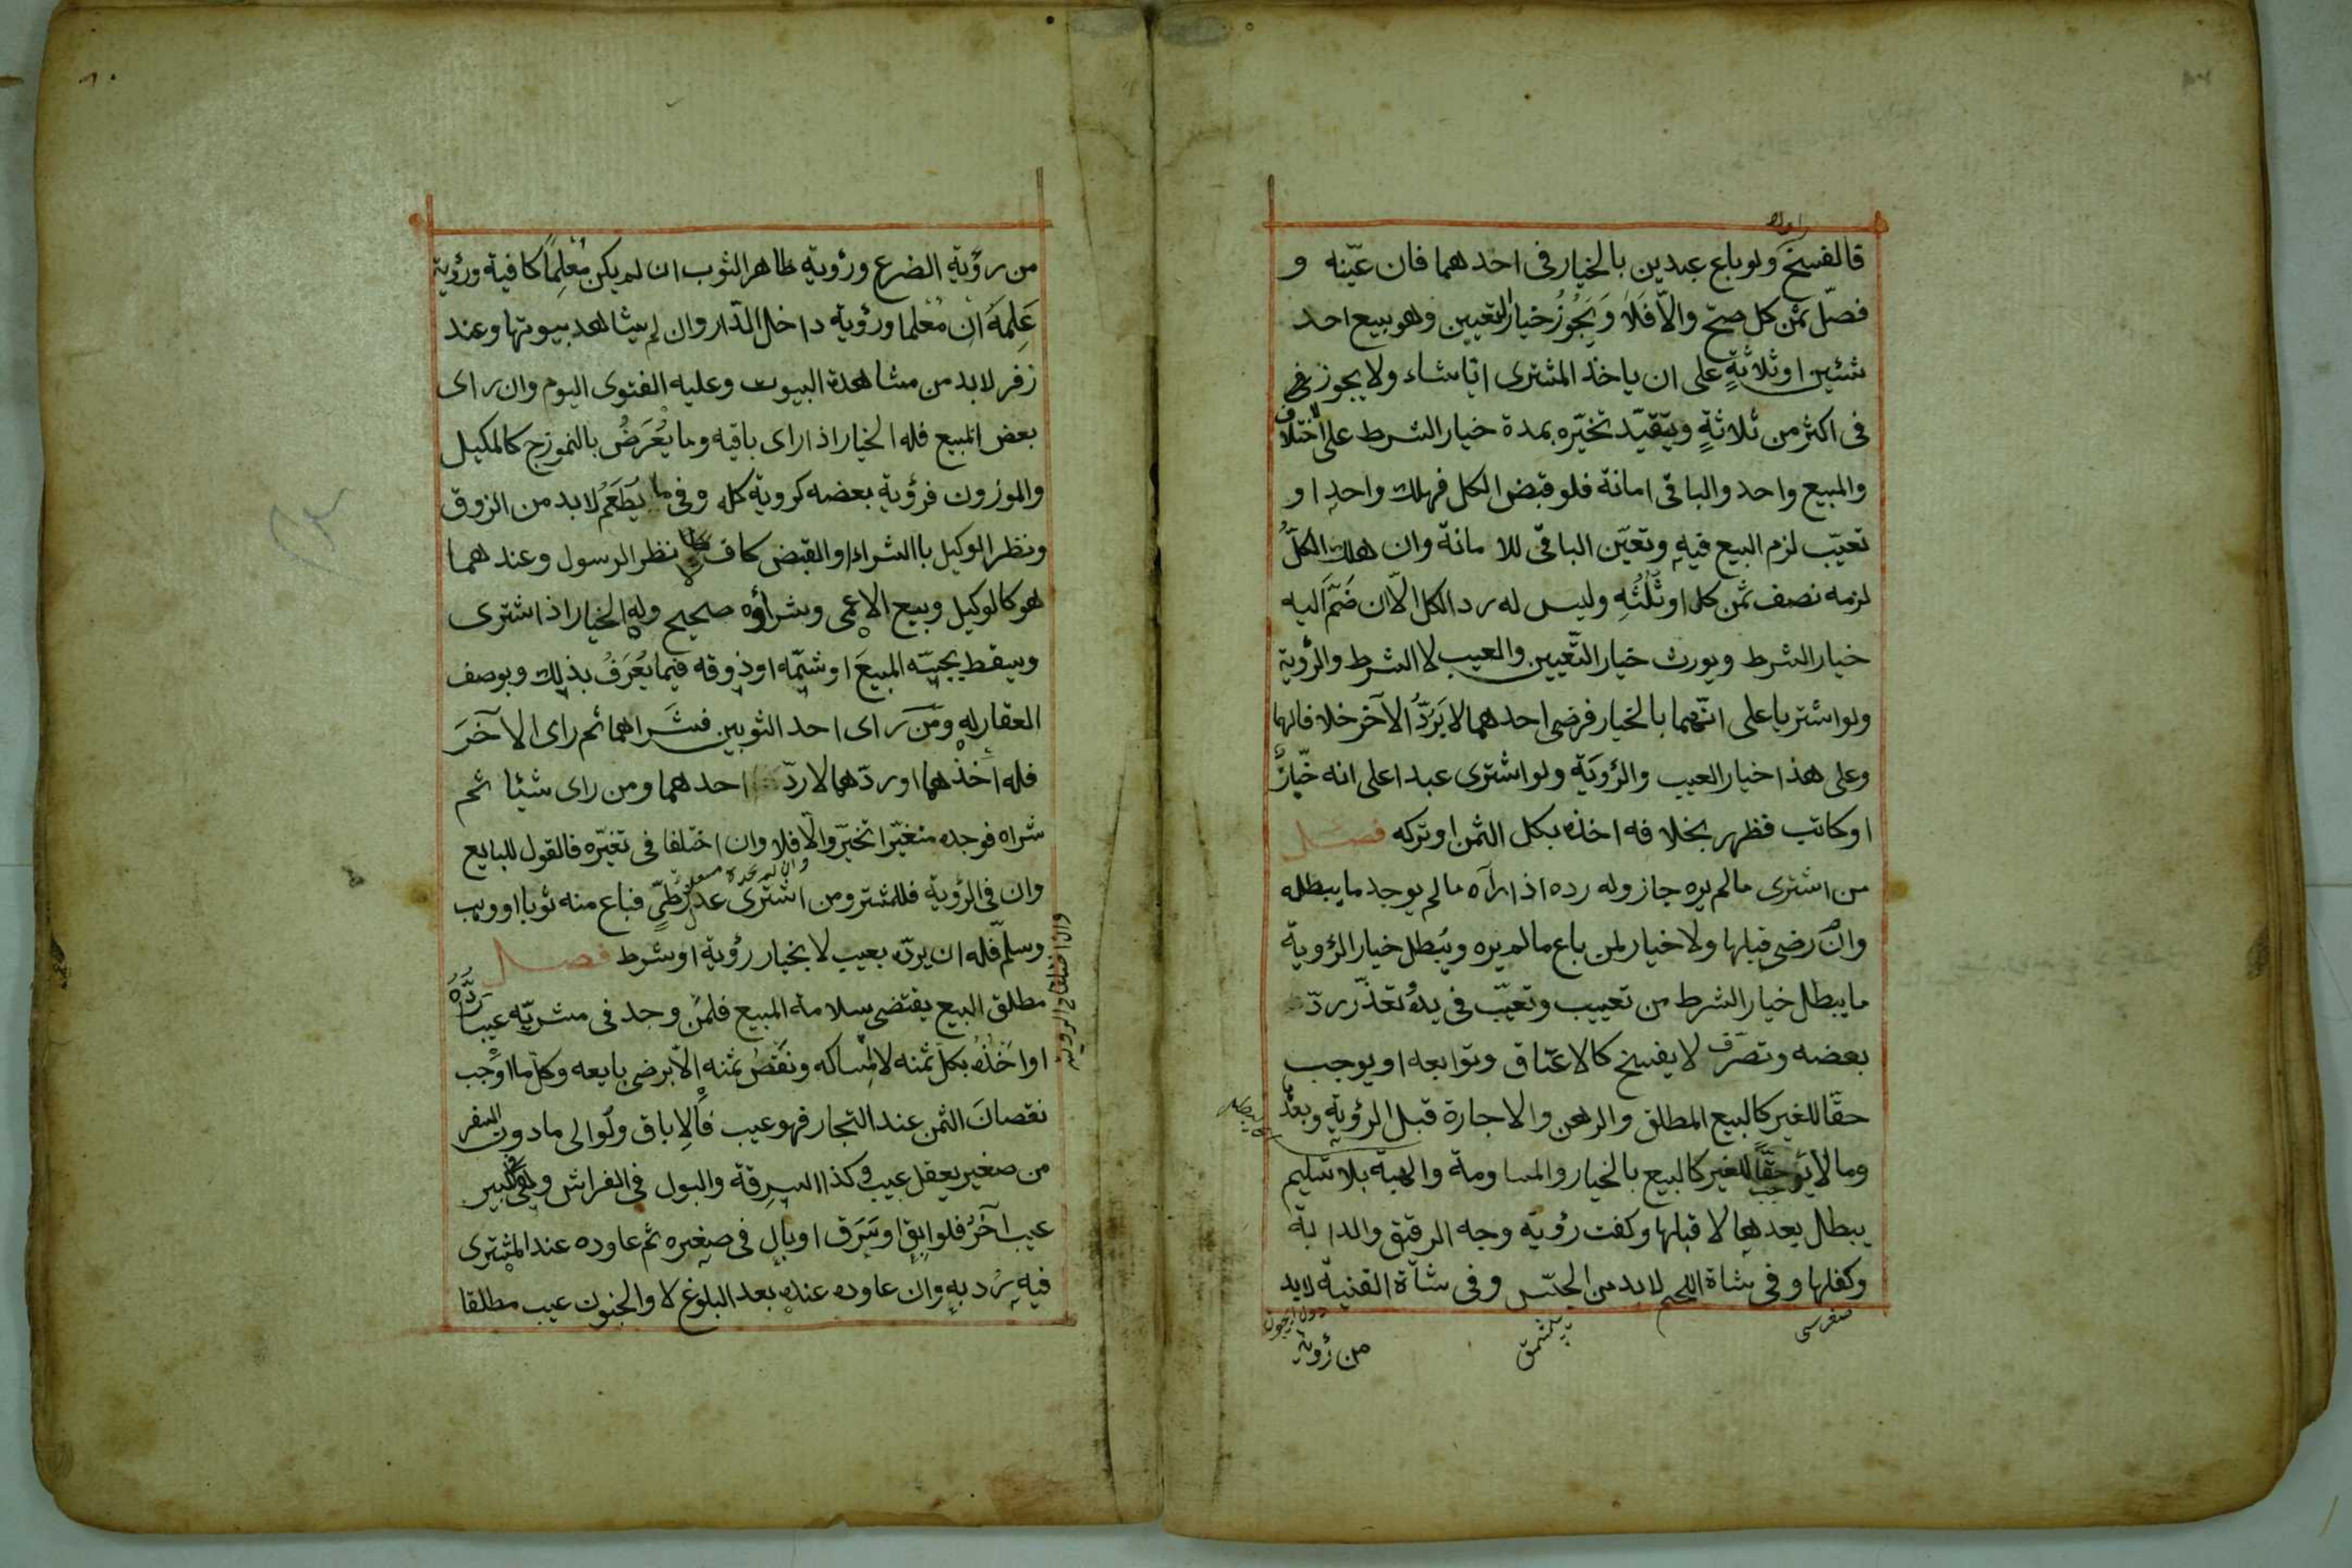 قالفسخ ولو باع عبدين بالخيار فى احدهما فان عيّنه و
فصّل ثمن كل صحّ والاّ فَلا وَيَجُوزُ خيار التعيين وهو بيع احد
شئين او ثلاثةٍ على ان ياخذ المشترى ايّا شاء ولا يجوز فى
فى اكثر من ثلاثةٍ ويتقيّد تخيّره بمدة خيار الشرط على الاختلاف
والمبيع واحد والباقى امانة فلو قبض الكل فهلك واحد او
تعيّب لزم البيع فيه وتعيّن الباقى للامانة وان هلك الكلُّ
لزمه نصف ثمن كل او ثُلُثُهِ وليس له رد الكل الاّ ان ضَمَّ اليه
خيار الشرط ويورث خيار التّعيين والعيب لا الشرط والرؤية
ولو اشتريا على انّهما بالخيار فرضى احدهما لا يَرَدُّ الآخر خلافا لهما
وعلى هذا خيار العيب والرؤيَة ولو اشترى عبدا على انه خبّازٌ
او كاتب فظهر بخلافه اخذه بكل الثمن او تركه فصل
من اشترى ما لم يره جاز وله رده اذا رآه ما لم يوجد ما يبطله
وان رضى قبلها ولا خيار لمن باع ما لم يره ويُبطل خيار الرؤية
ما يبطل خيار الشرط من تعييب وتعيّب فى يده وتعذّر ردّ
بعضه وتصَرّف لا يفسخ كالاعتاق وتوابعه او يوجب
حقّا للغير كالبيع المطلق والرهن والاجارة قبل الرؤية وبعدها
وما لا يوجب حقّاً للغير كالبيع بالخيار والمساومة والهبة بلا تسليم
يبطل بعدها لا قبلها وكفت رؤية وجه الرقيق والدابة
وكفلها وفى شاة اللحم لابد من الجسّ وفى شأة القنية لابد
من رؤية
من رؤية الضرع ورؤية ظاهر الثوب ان لم يكن مُعْلِماً كافية ورؤية
عَلَمِهَ ان مُعْلما ورؤية داخل الدّار وان لم يشاهد بيوتها وعند
زفر لابد من مشاهدة البيوت وعليه الفتوى اليوم وان راى
بعض المبيع فله الخيار اذا راى باقيه وما يُعْرَضُ بالنموزج كالمكيل
والموزون فرؤية بعضه كروية كله وفى ما يَطَعَمُ لابد من الزوق
ونظر الوكيل باالشراء او القبض كاف لا نظر الرسول وعندهما
هو كالوكيل وبيع الاعمى وشراؤه صحيح وله الخيار اذا اشترى
ويسقط بجسّه المبيعَ او شمّه او ذوقه فيما يُعْرَفُ بذلك وبوصف
العقار له ومَن راى احد الثوبين فشَراهما ثم راى الاخَرَ
فله اخذهما او ردّهما لا ردّ احدهما ومن راى شيئا ثم
شراه فوجده متغيّرا تخيّر والاّ فلا وان اختلفا فى تغيّره فالقول للبايع
وان فى الرؤية فللمشتر ومن اشترى عدل زطّىٍّ فباع منه ثوبا او وهب
وسلّم فله ان يردّه بعيب لا بخيار رؤية او شرط فصل
مطلق البيع يقتضى سلامة المبيع فلمن وجد فى مشريّه عيبا رَدَّهُ
او اخْذُهُ بكل ثمنه لا امساكه ونَقْصُ ثمنه الاّ برضى بايعه وكلّ ما اوْجب
نقصانَ الثمن عند التجار فهو عيب فالاِباق ولو الى ما دون السفر
من صغير يعقل عيب وكذا السرقة والبول فى الفراش وهى فى الكبير
عيب آخَرُ فلو ابق او سَرَق او بال فى صغيره ثم عاوده عند المشترى
فيه يُردّ به وان عاوده عنده بعد البلوغ لا والجنون عيب مطلقا
وان اختلفا فى الرؤية